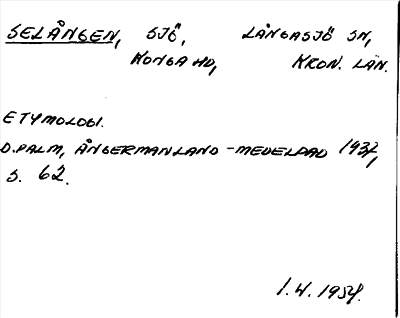 SELÅNGEN, SJÖ, LÅNGASJÖ SN,
KONGA HD, KRON. LÄN.
ETYMOLOGI.
D. PALM, ÅNGERMANLAND - MEDELPAD 1937,
S. 62.
1.4.1954.